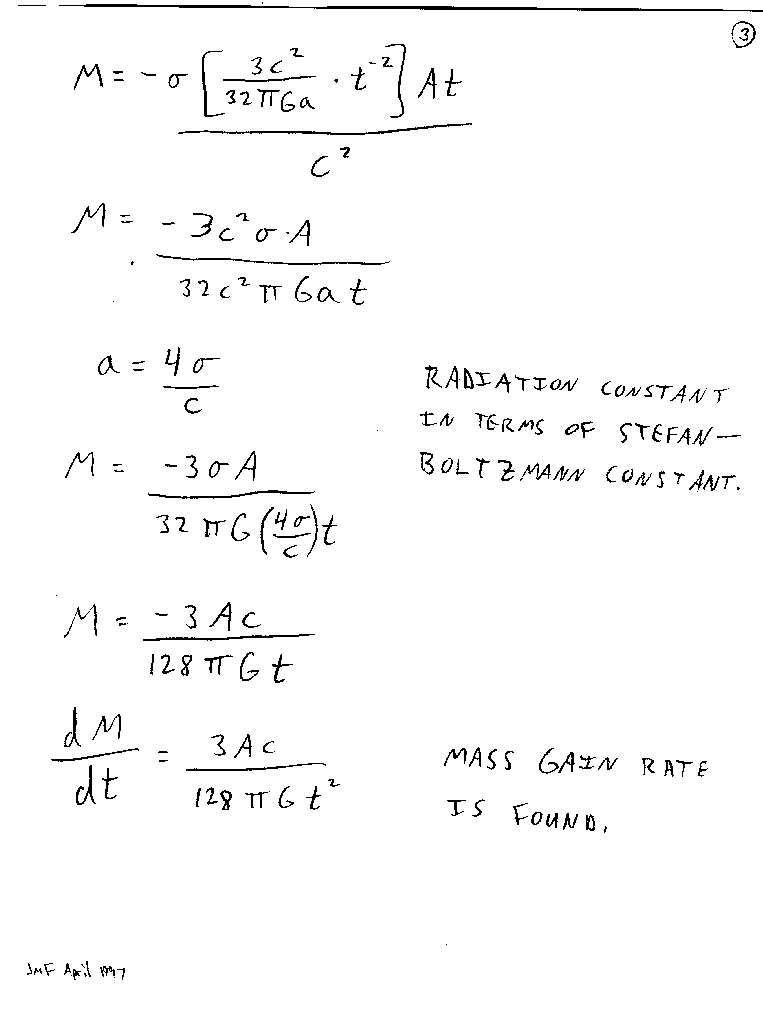 ③
M = -σ [ 3c² / 32πGa · t⁻² ] At / c²
M = -3c²σ·A / 32c²πGat
a = 4σ / c
RADIATION CONSTANT
IN TERMS OF STEFAN-
BOLTZMANN CONSTANT.
M = -3σA / 32πG(4σ/c)t
M = -3Ac / 128πGt
dM/dt = 3Ac / 128πGt²
MASS GAIN RATE
IS FOUND.
JMF April 1997